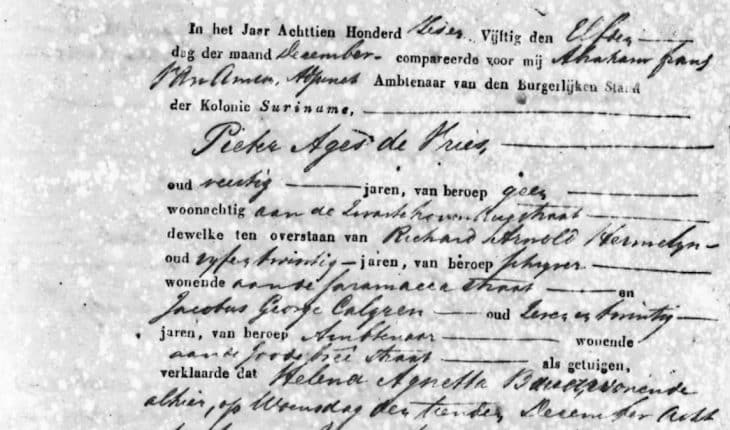 In het Jaar Achttien Honderd Zes en Vijftig den Elfden
dag der maand December compareerde voor mij Abraham frans
Adjunct Ambtenaar van den Burgerlijken Stand
der Kolonie Suriname,
Pieter Ages de Vries,
oud veertig jaren, van beroep geen
woonachtig aan de Zwartehovenbrugstraat
dewelke ten overstaan van Richard Arnold Hermelyn
oud vyf en twintig jaren, van beroep schryver
wonende aan de Saramacca straat en
Jacobus George Calgren oud Zeven en twintig
jaren, van beroep Ambtenaar wonende
aan de Joode bree straat als getuigen,
verklaarde dat Helena Agnetta wonende
alhier, op Woensdag den tienden December Acht